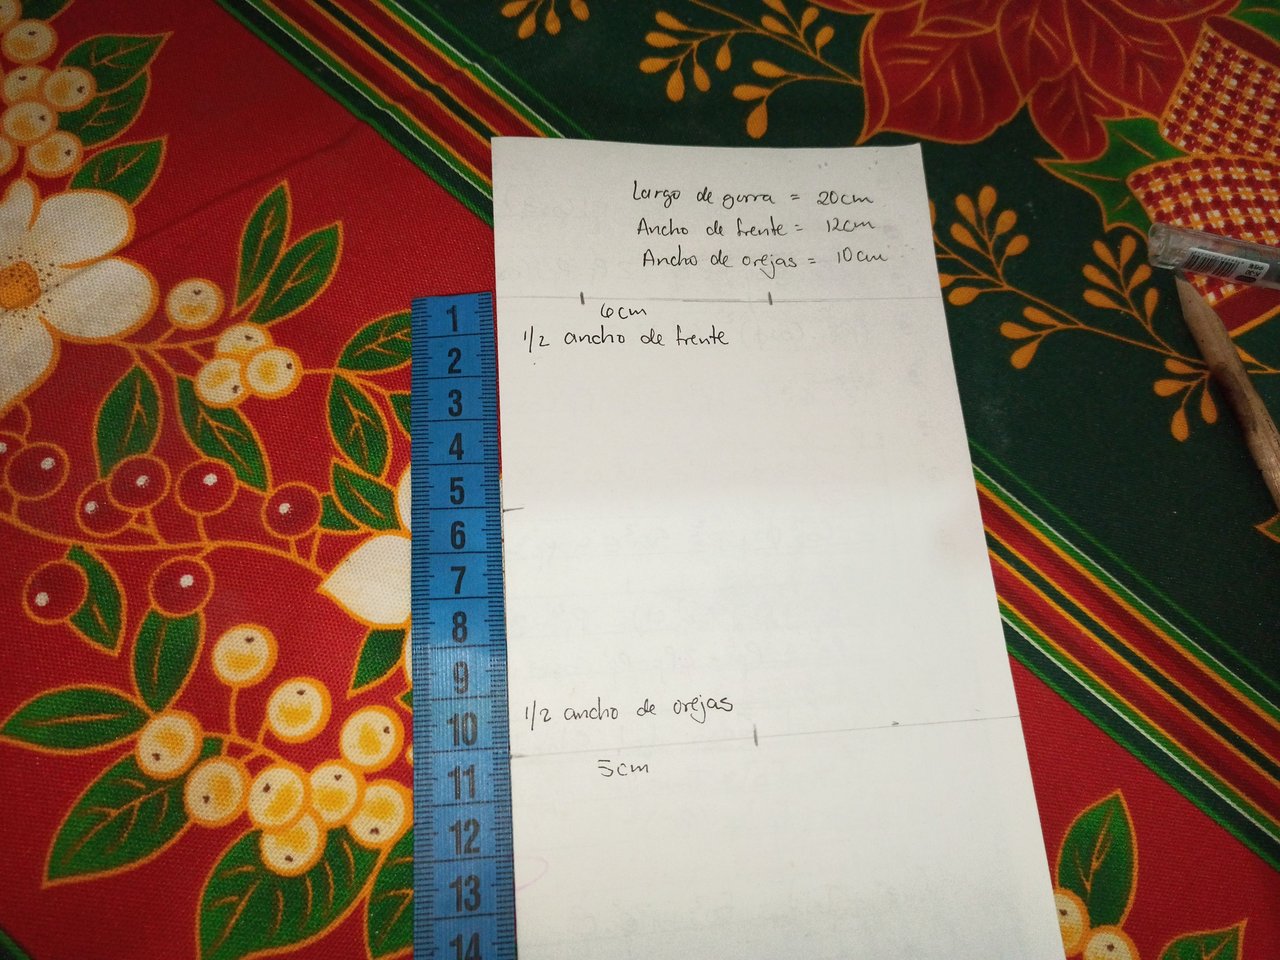 Largo de gorra = 20cm
Ancho de frente = 12cm
Ancho de orejas = 10cm
6cm
1/2 ancho de frente
1/2 ancho de orejas
5cm
1
2
3
4
5
6
7
8
9
10
11
12
13
14